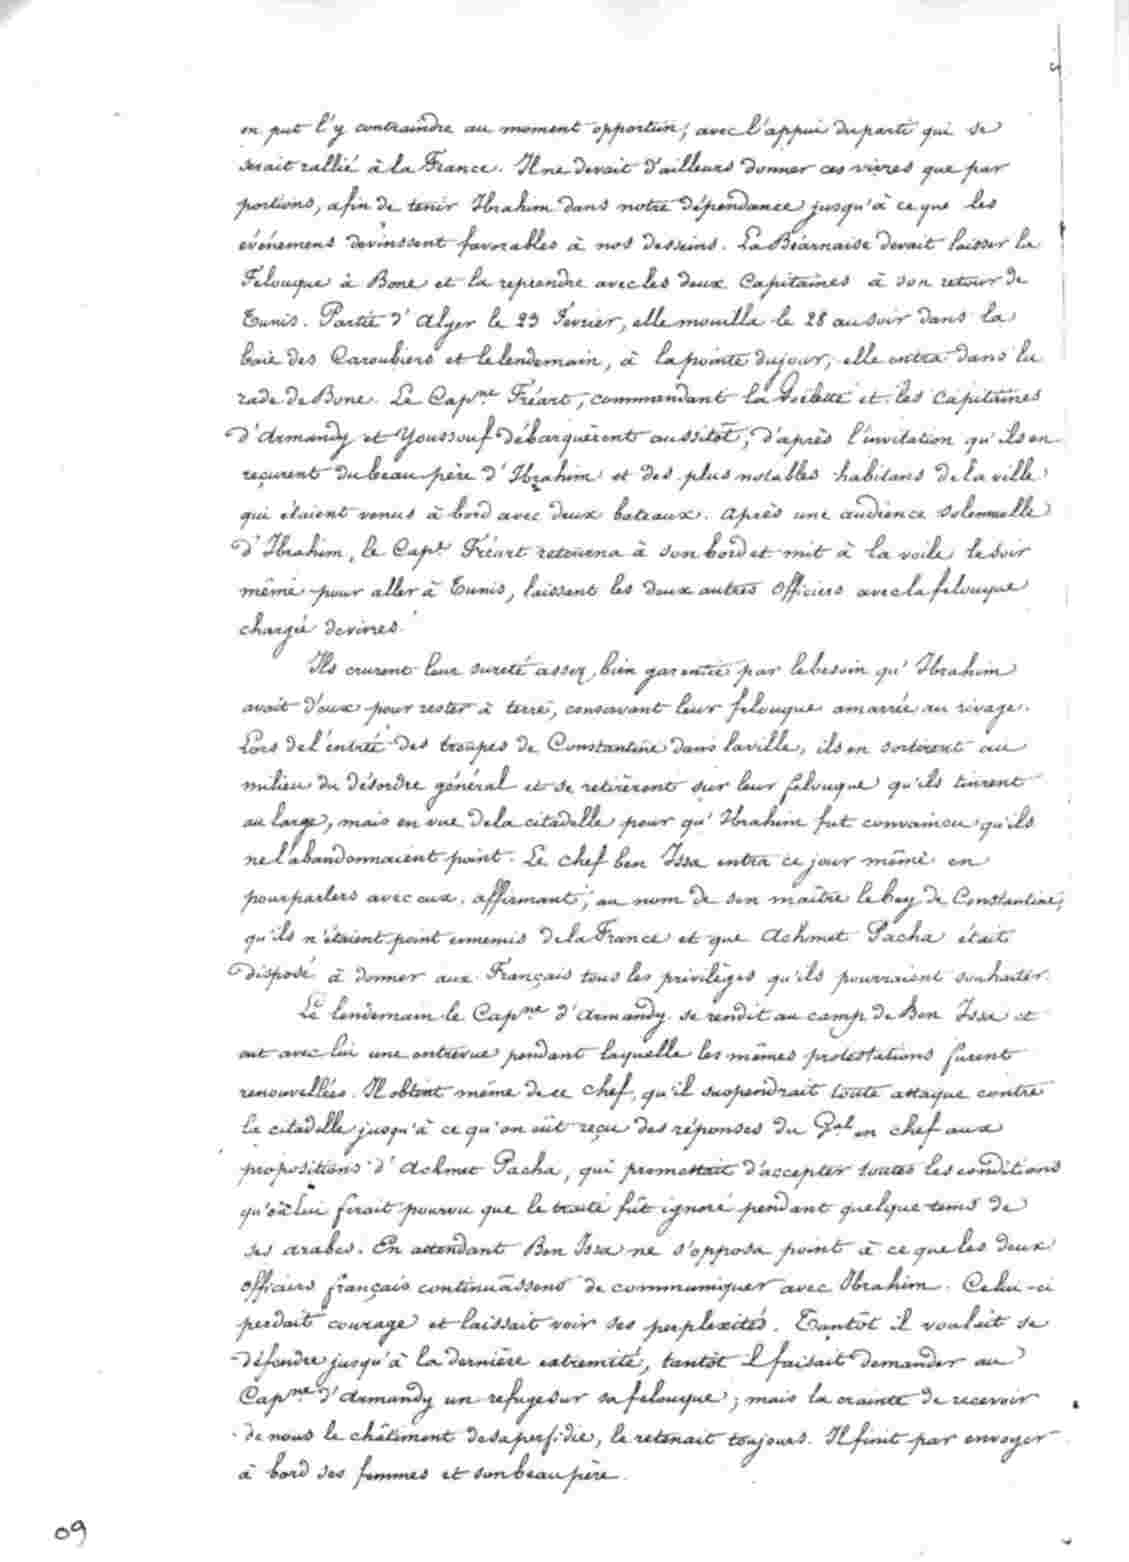 on put l'y contraindre au moment opportun, avec l'appui du parti qui se
serait rallié à la France. Il ne devait d'ailleurs donner ces vivres que par
portions, afin de tenir Ibrahim dans notre dépendance jusqu'à ce que les
événemens devinssent favorables à nos desseins. La Béarnaise devait laisser la
Felouque à Bone et la reprendre avec les deux Capitaines à son retour de
Tunis. Partie d'Alger le 23 Février, elle mouilla le 28 au soir dans la
baie des Caroubiers et le lendemain, à la pointe du jour, elle entra dans la
rade de Bone. Le Capne Fréart, commandant la Goëlette et les Capitaines
d'Armandy et Youssouf débarquèrent aussitôt, d'après l'invitation qu'ils en
reçurent du beau père d'Ibrahim et des plus notables habitans de la ville
qui étaient venus à bord avec deux bateaux. Après une audience solennelle
d'Ibrahim, le Capne Fréart retourna à son bord et mit à la voile le soir
même pour aller à Tunis, laissant les deux autres Officiers avec la felouque
chargée de vivres.
Ils crurent leur sureté assez bien garantie par le besoin qu'Ibrahim
avait d'eux pour rester à terre, conservant leur felouque amarrée au rivage.
Lors de l'entrée des troupes de Constantine dans la ville, ils en sortirent au
milieu du désordre général et se retirèrent sur leur felouque qu'ils tinrent
au large, mais en vue de la citadelle pour qu'Ibrahim fut convaincu qu'ils
ne l'abandonnaient point. Le chef ben Issa entra ce jour même en
pourparlers avec eux, affirmant, au nom de son maître le bey de Constantine,
qu'ils n'étaient point ennemis de la France et que Achmet Pacha était
disposé à donner aux Français tous les privilèges qu'ils pourraient souhaiter.
Le lendemain le Capne d'Armandy se rendit au camp de Ben Issa et
eut avec lui une entrevue pendant laquelle les mêmes protestations furent
renouvellées. Il obtint même de ce chef, qu'il suspendrait toute attaque contre
la citadelle jusqu'à ce qu'on eût reçu des réponses du Gal en chef aux
propositions d'Achmet Pacha, qui promettait d'accepter toutes les conditions
qu'on lui ferait pourvu que le traité fût ignoré pendant quelque tems de
ses arabes. En attendant Ben Issa ne s'opposa point à ce que les deux
officiers français continuassent de communiquer avec Ibrahim. Celui-ci
perdait courage et laissait voir ses perplexités. Tantôt il voulait se
défendre jusqu'à la dernière extremité, tantôt il faisait demander au
Capne d'Armandy un refuge sur sa felouque ; mais la crainte de recevoir
de nous le châtiment de sa perfidie, le retenait toujours. Il finit par envoyer
à bord ses femmes et son beau père.
09